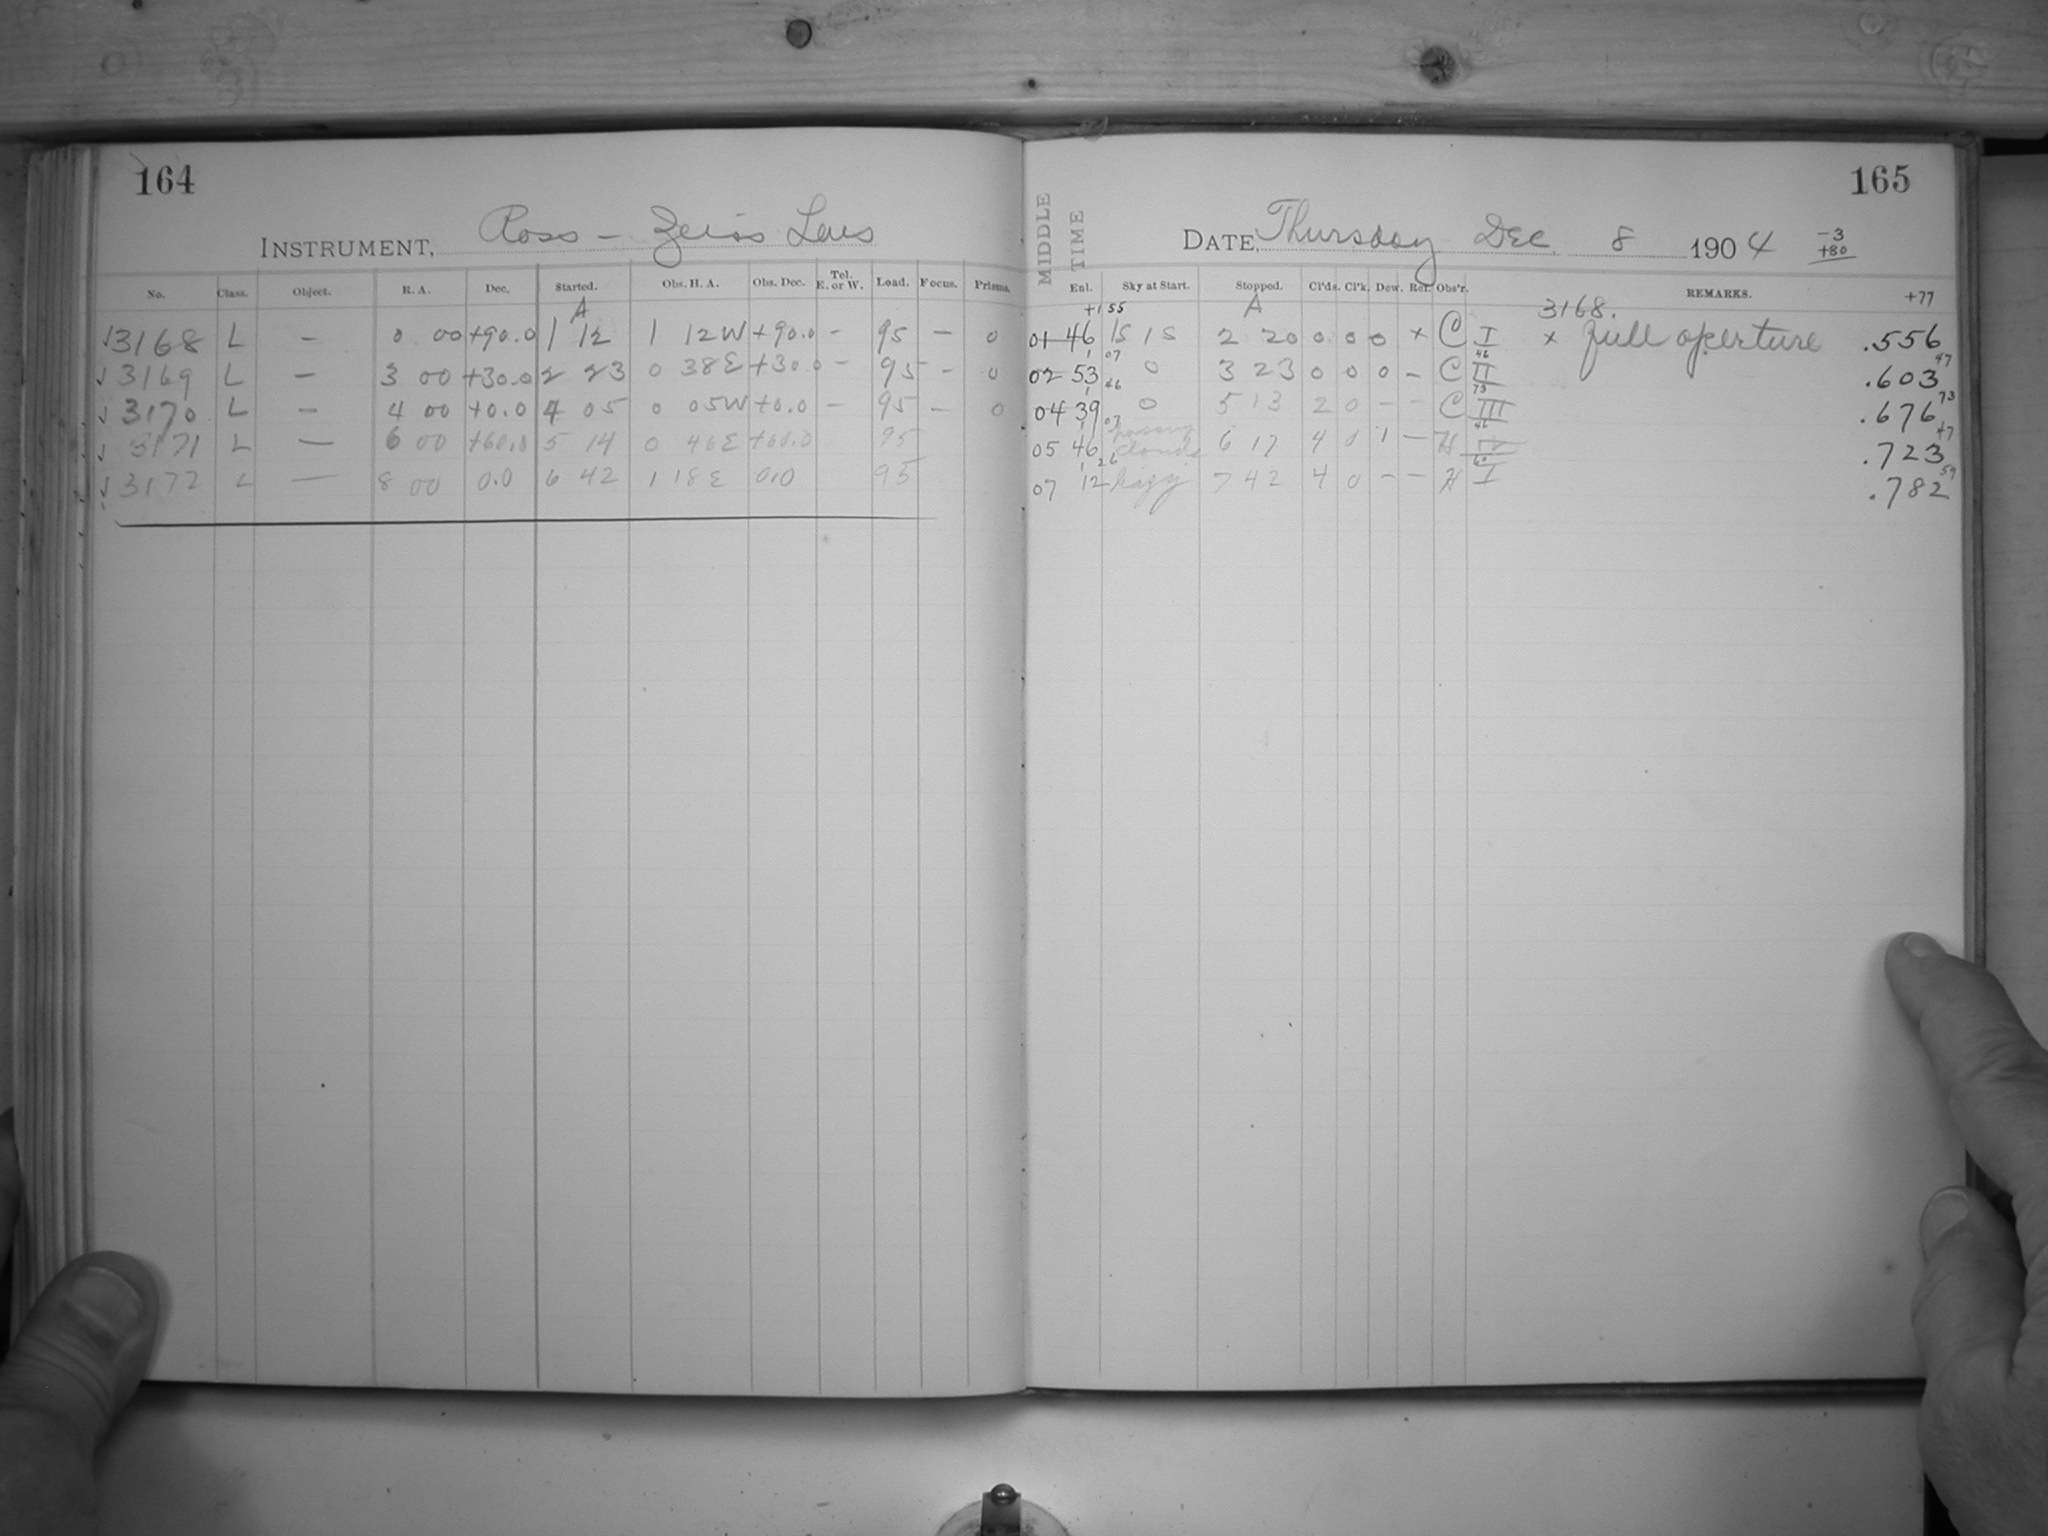 164
INSTRUMENT, Ross - Zeiss Lens
No. Class. Object. R. A. Dec. Started. Obs. H. A. Obs. Dec. Tel. E. or W. Load. Focus. Prisms.
A
√3168 L — 0 00 +90.0 1 12 1 12W +90.0 - 95 — 0
√3169 L — 3 00 +30.0 2 23 0 38E +30.0 - 95 - 0
√3170 L — 4 00 +0.0 4 05 0 05W +0.0 — 95 — 0
√3171 L — 6 00 +60.0 5 14 0 46E +60.0 95
√3172 L — 8 00 0.0 6 42 1 18E 0.0 95
165
MIDDLE TIME
DATE, Thursday Dec. 8 1904
-3
+80
+77
Enl. Sky at Start. Stopped. Cl'ds. Cl'k. Dew. Ref. Obs'r. REMARKS.
+1 55 A 3168.
01 46 15 15 2 20 0 0 0 0 x C I x full aperture .556
1 07 46 47
02 53 0 3 23 0 0 0 - C II .603
1 46 73 73
04 39 0 5 13 2 0 - - C III .676
1 07 46 47
05 46 passing clouds 6 17 4 0 1 — H IV .723
1 26 60 59
07 12 hazy 7 42 4 0 - - H I .782